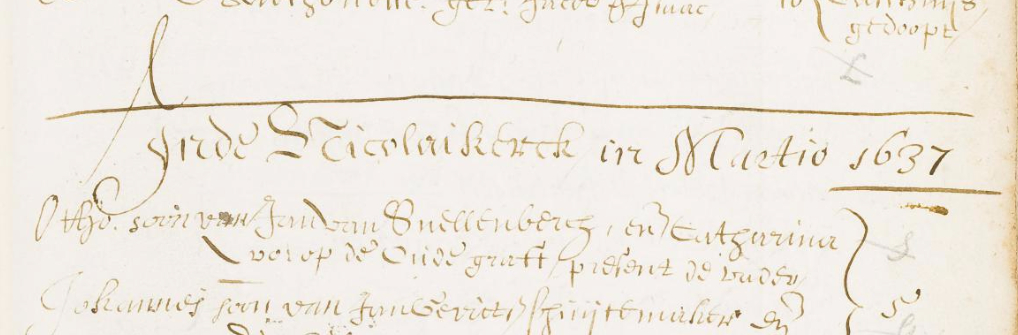 gedoopt
Inde Nicolaikerck in Martio 1637
soon van Jan van Snellenberch, en Catharina
op de Oude graft, present de vader
Johannes soon van Jan Gerritss schuijtemaker en